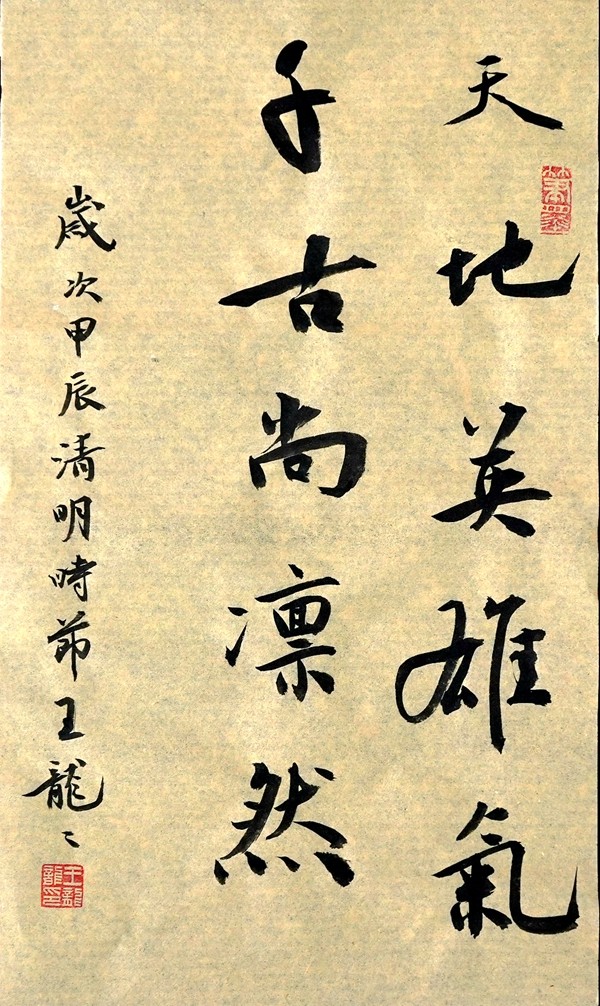 天地英雄氣
千古尚凛然
歲次甲辰清明時節王龍〻
王龍龍印